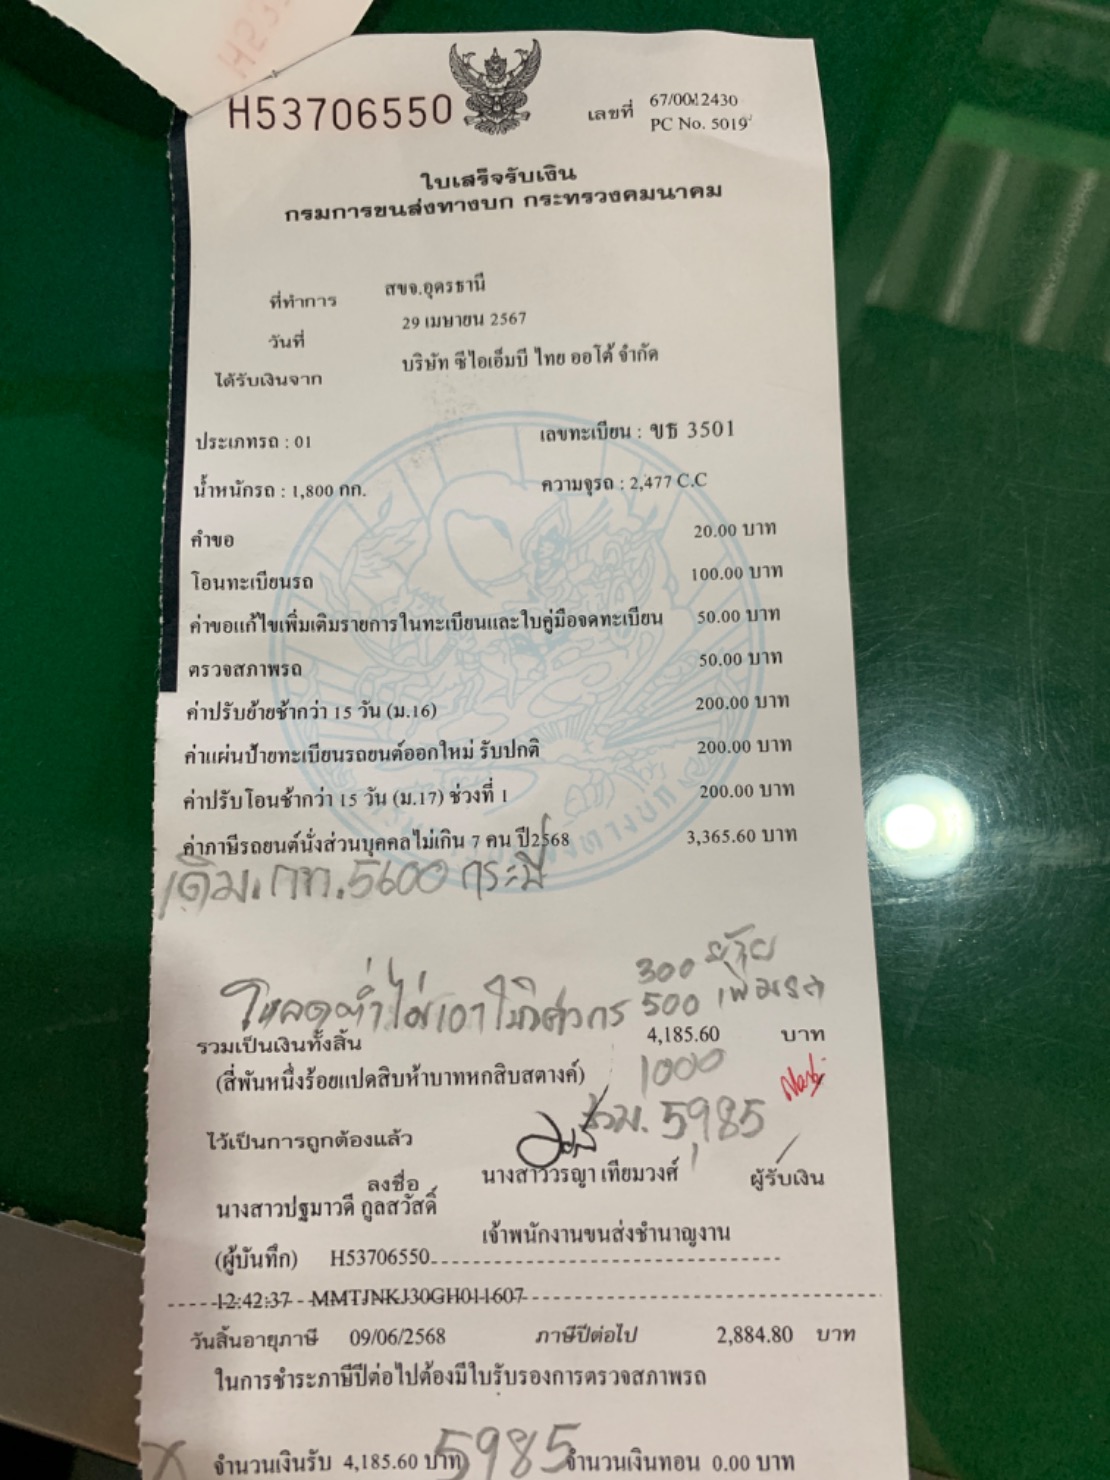 H53706550
เลขที่ 67/0042430
PC No. 5019
ใบเสร็จรับเงิน
กรมการขนส่งทางบก กระทรวงคมนาคม
ที่ทำการ สขจ.อุดรธานี
วันที่ 29 เมษายน 2567
ได้รับเงินจาก บริษัท ซีไอเอ็มบี ไทย ออโต้ จำกัด
ประเภทรถ : 01 เลขทะเบียน : ขธ 3501
น้ำหนักรถ : 1,800 กก. ความจุรถ : 2,477 C.C
คำขอ 20.00 บาท
โอนทะเบียนรถ 100.00 บาท
ค่าขอแก้ไขเพิ่มเติมรายการในทะเบียนและใบคู่มือจดทะเบียน 50.00 บาท
ตรวจสภาพรถ 50.00 บาท
ค่าปรับย้ายช้ากว่า 15 วัน (ม.16) 200.00 บาท
ค่าแผ่นป้ายทะเบียนรถยนต์ออกใหม่ รับปกติ 200.00 บาท
ค่าปรับโอนช้ากว่า 15 วัน (ม.17) ช่วงที่ 1 200.00 บาท
ค่าภาษีรถยนต์นั่งส่วนบุคคลไม่เกิน 7 คน ปี2568 3,365.60 บาท
เดิม. กท. 5600 กระบี่
300 ย้าย
โหลดต่ำไม่เอาใบวิศวกร 500 เพิ่มรถ
รวมเป็นเงินทั้งสิ้น 4,185.60 บาท
(สี่พันหนึ่งร้อยแปดสิบห้าบาทหกสิบสตางค์) 1000
รวม. 5,985
ไว้เป็นการถูกต้องแล้ว
ลงชื่อ นางสาววรญา เทียมวงศ์ ผู้รับเงิน
นางสาวปฐมาวดี กูลสวัสดิ์
เจ้าพนักงานขนส่งชำนาญงาน
(ผู้บันทึก) H53706550
12:42:37 - MMTJNKJ30GH011607
วันสิ้นอายุภาษี 09/06/2568 ภาษีปีต่อไป 2,884.80 บาท
ในการชำระภาษีปีต่อไปต้องมีใบรับรองการตรวจสภาพรถ
จำนวนเงินรับ 4,185.60 บาท 5985 จำนวนเงินทอน 0.00 บาท